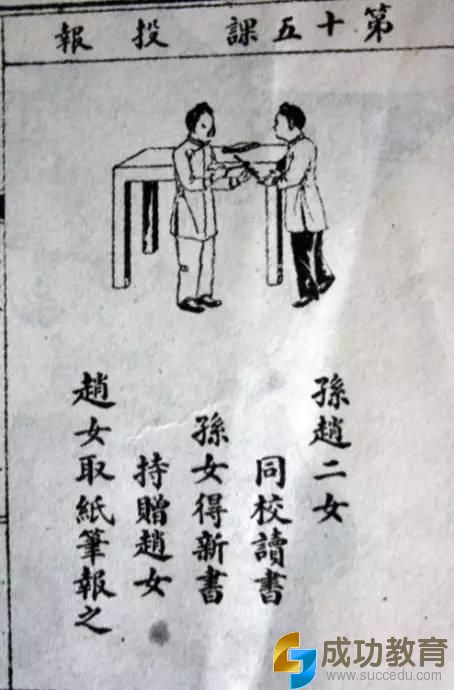 第十五課 投報
孫趙二女
同校讀書
孫女得新書
持贈趙女
趙女取紙筆報之
成功教育
www.succedu.com